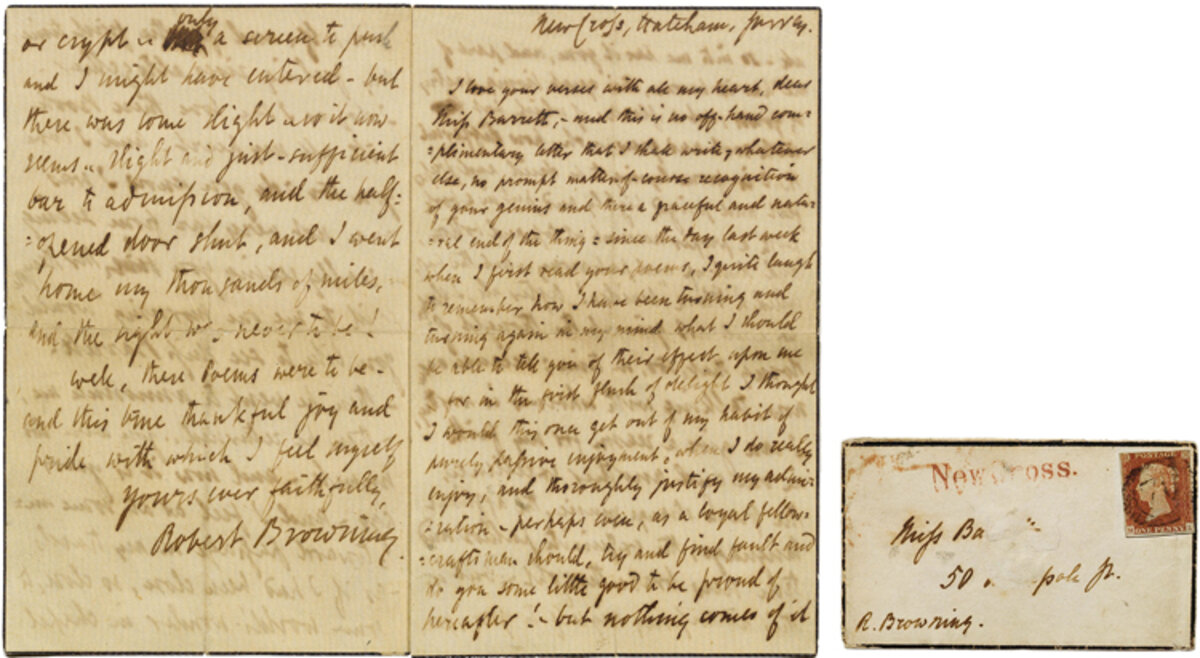 or crypt .. only a screen to push
and I might have entered - but
there was some slight .. so it now
seems .. slight and just-sufficient
bar to admission, and the half-
=opened door shut, and I went
home my thousands of miles,
and the sight was never to be!
Well, these Poems were to be -
and this true thankful joy and
pride with which I feel myself
Yours ever faithfully,
Robert Browning.
New Cross, Hatcham, Surrey.
I love your verses with all my heart, dear
Miss Barrett, - and this is no off-hand com=
=plimentary letter that I shall write, - whatever
else, no prompt matter-of-course recognition
of your genius and there a graceful and natu=
=ral end of the thing: since the day last week
when I first read your poems, I quite laugh
to remember how I have been turning and
turning again in my mind what I should
be able to tell you of their effect upon me
for in the first flush of delight I thought
I would this once get out of my habit of
purely passive enjoyment, when I do really
enjoy, and thoroughly justify my admi=
=ration - perhaps even, as a loyal fellow-
=craftsman should, try and find fault and
do you some little good to be proud of
hereafter! - but nothing comes of it
New Cross.
POSTAGE
ONE PENNY
Miss Ba
50 pole St.
R. Browning.